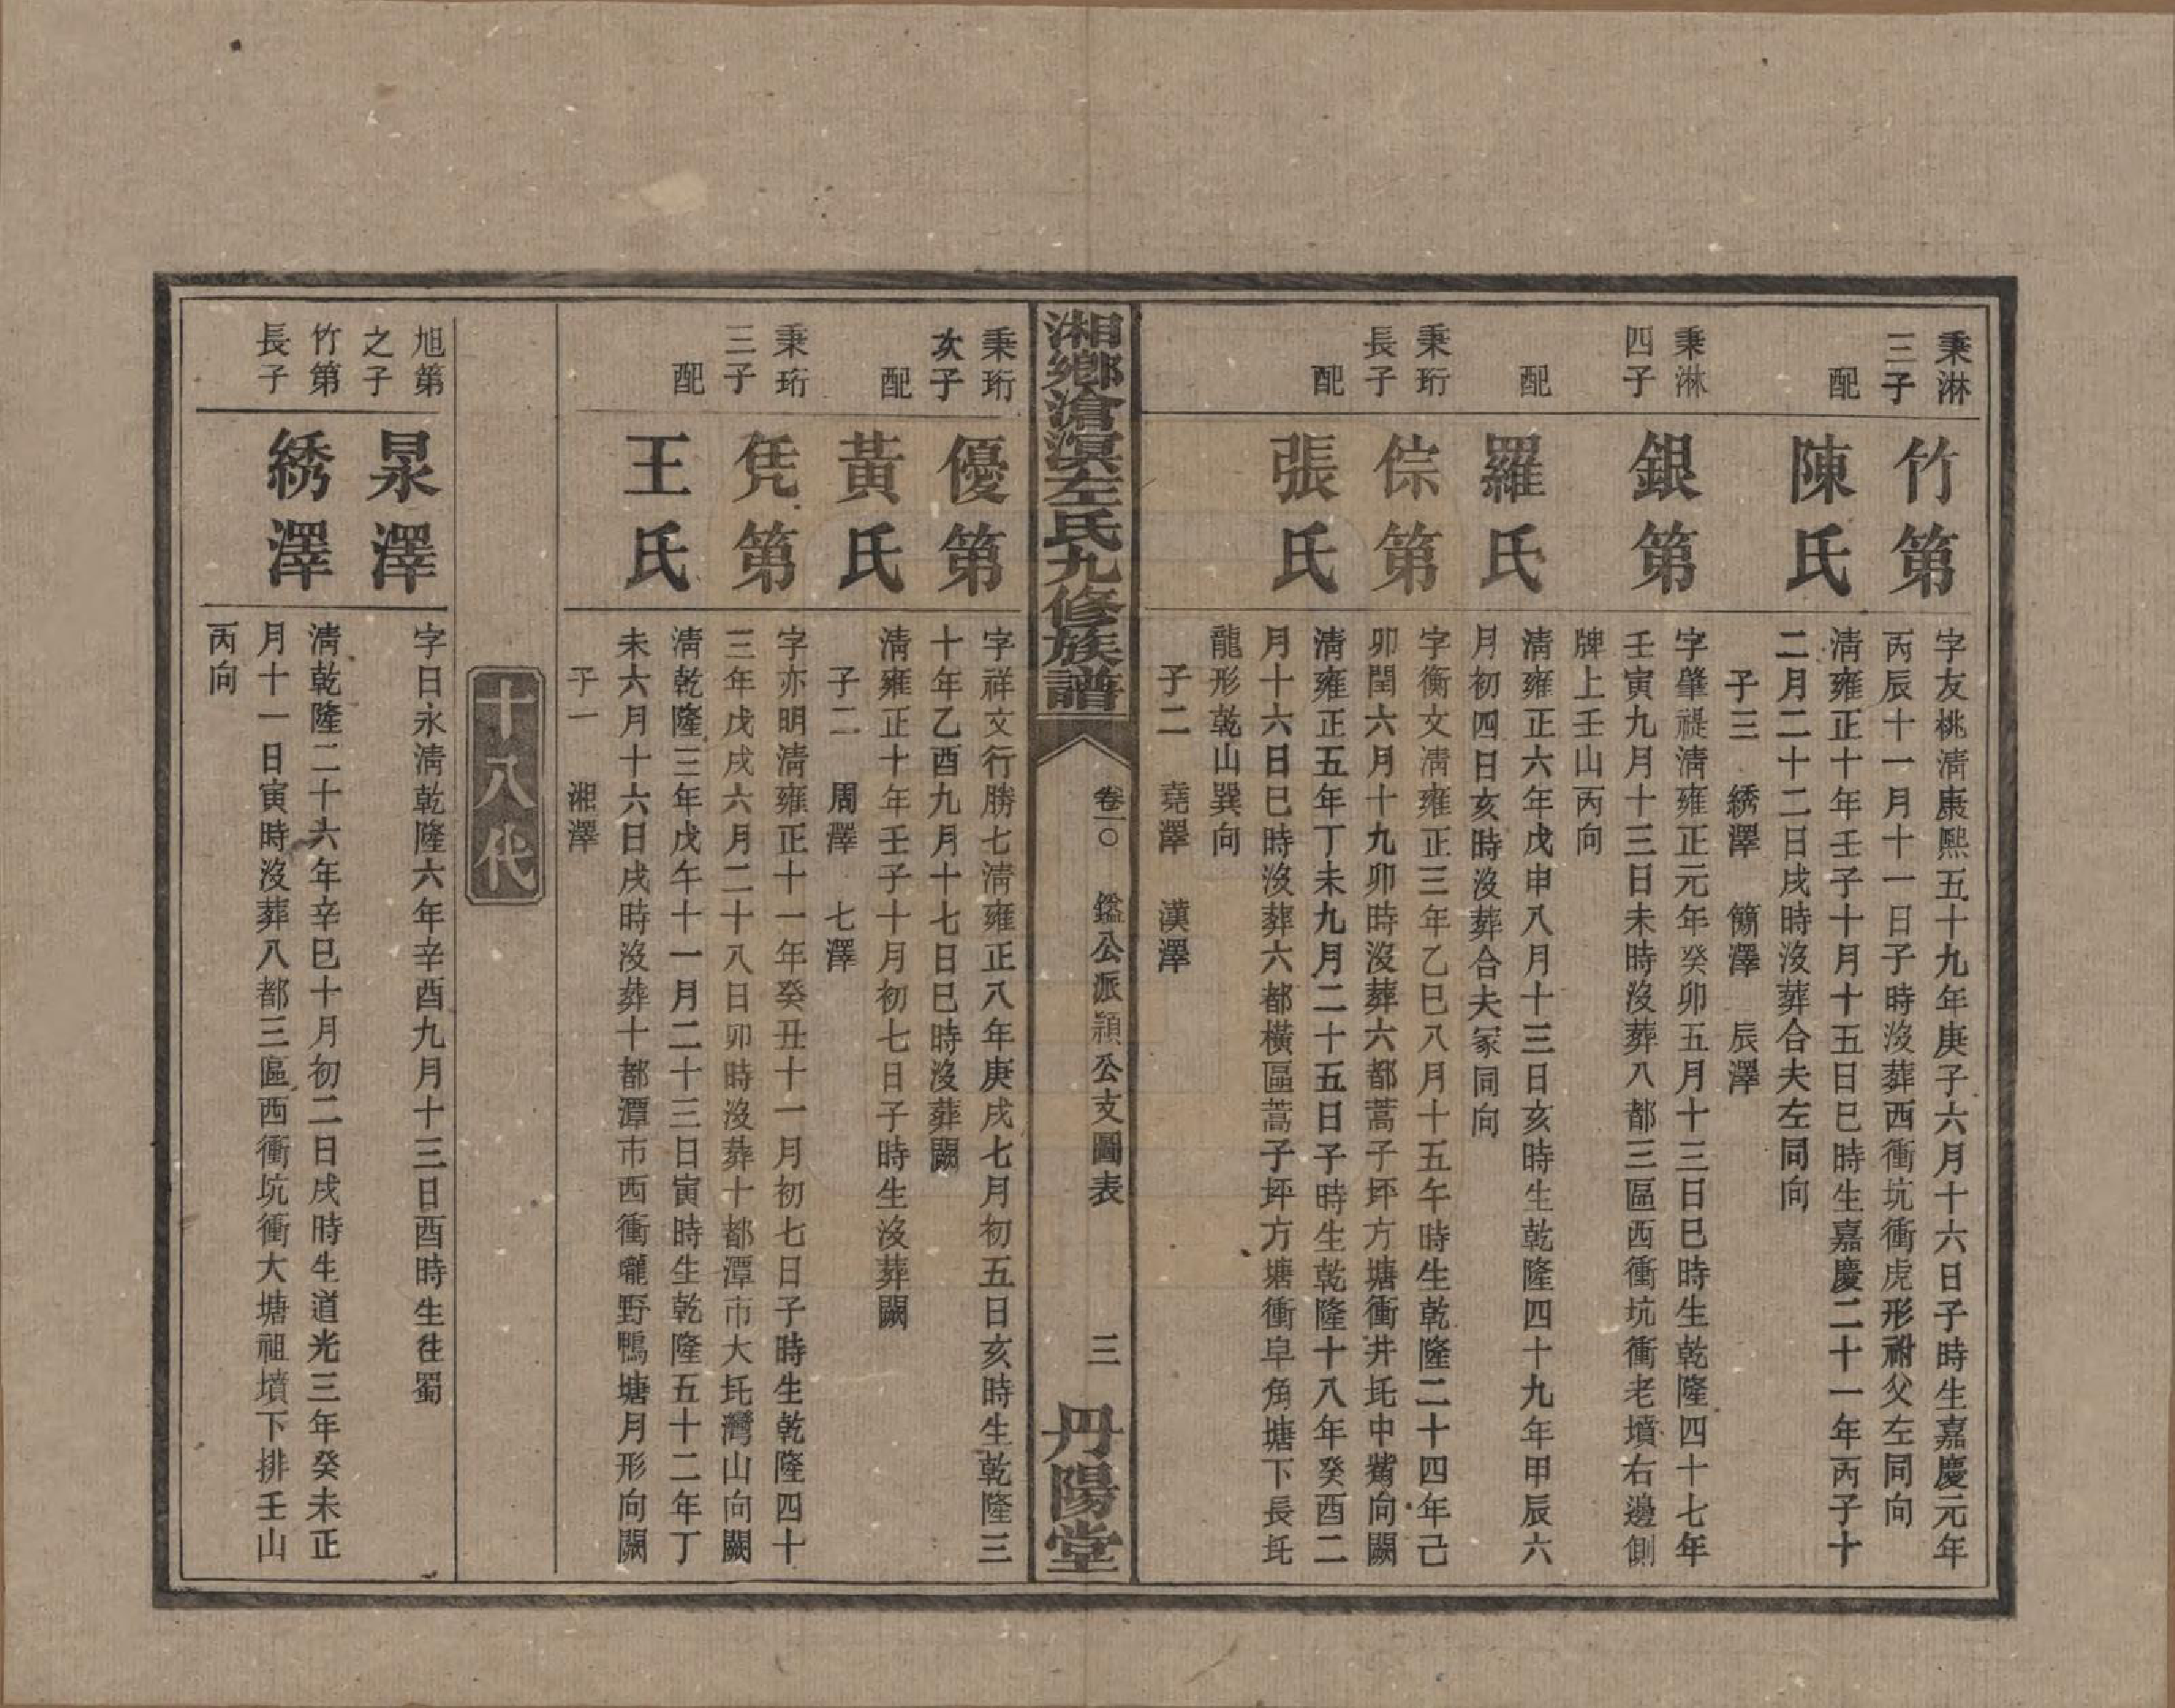 秉淋三子
竹第
字友桃清康熙五十九年庚子六月十六日子時生嘉慶元年
丙辰十一月十一日子時沒葬西衝坑衝虎形祔父左同向
配
陳氏
清雍正十年壬子十月十五日巳時生嘉慶二十一年丙子十
二月二十二日戌時沒葬合夫左同向
子三 綉澤 簡澤 辰澤
秉淋四子
銀第
字肇禔清雍正元年癸卯五月十三日巳時生乾隆四十七年
壬寅九月十三日未時沒葬八都三區西衝坑衝老墳右邊側
牌上壬山丙向
配
羅氏
清雍正六年戊申八月十三日亥時生乾隆四十九年甲辰六
月初四日亥時沒葬合夫冢同向
秉珩長子
倧第
字衡文清雍正三年乙巳八月十五午時生乾隆二十四年己
卯閏六月十九卯時沒葬六都蒿子坪方塘衝井坉中嘴向闕
配
張氏
清雍正五年丁未九月二十五日子時生乾隆十八年癸酉二
月十六日巳時沒葬六都橫區蒿子坪方塘衝皁角塘下長坉
龍形乾山巽向
子二 堯澤 漢澤
湘鄉滄溟左氏九修族譜
卷一〇 鑑公派顯公支圖表
三
丹陽堂
秉珩次子
優第
字祥文行勝七清雍正八年庚戌七月初五日亥時生乾隆三
十年乙酉九月十七日巳時沒葬闕
配
黃氏
清雍正十年壬子十月初七日子時生沒葬闕
子二 周澤 七澤
秉珩三子
凭第
字亦明清雍正十一年癸丑十一月初七日子時生乾隆四十
三年戊戌六月二十八日卯時沒葬十都潭市大坉灣山向闕
配
王氏
清乾隆三年戊午十一月二十三日寅時生乾隆五十二年丁
未六月十六日戌時沒葬十都潭市西衝壠野鴨塘月形向闕
子一 湘澤
十八代
旭第之子
泉澤
字日永清乾隆六年辛酉九月十三日酉時生往蜀
竹第長子
綉澤
清乾隆二十六年辛巳十月初二日戌時生道光三年癸未正
月十一日寅時沒葬八都三區西衝坑衝大塘祖墳下排壬山
丙向